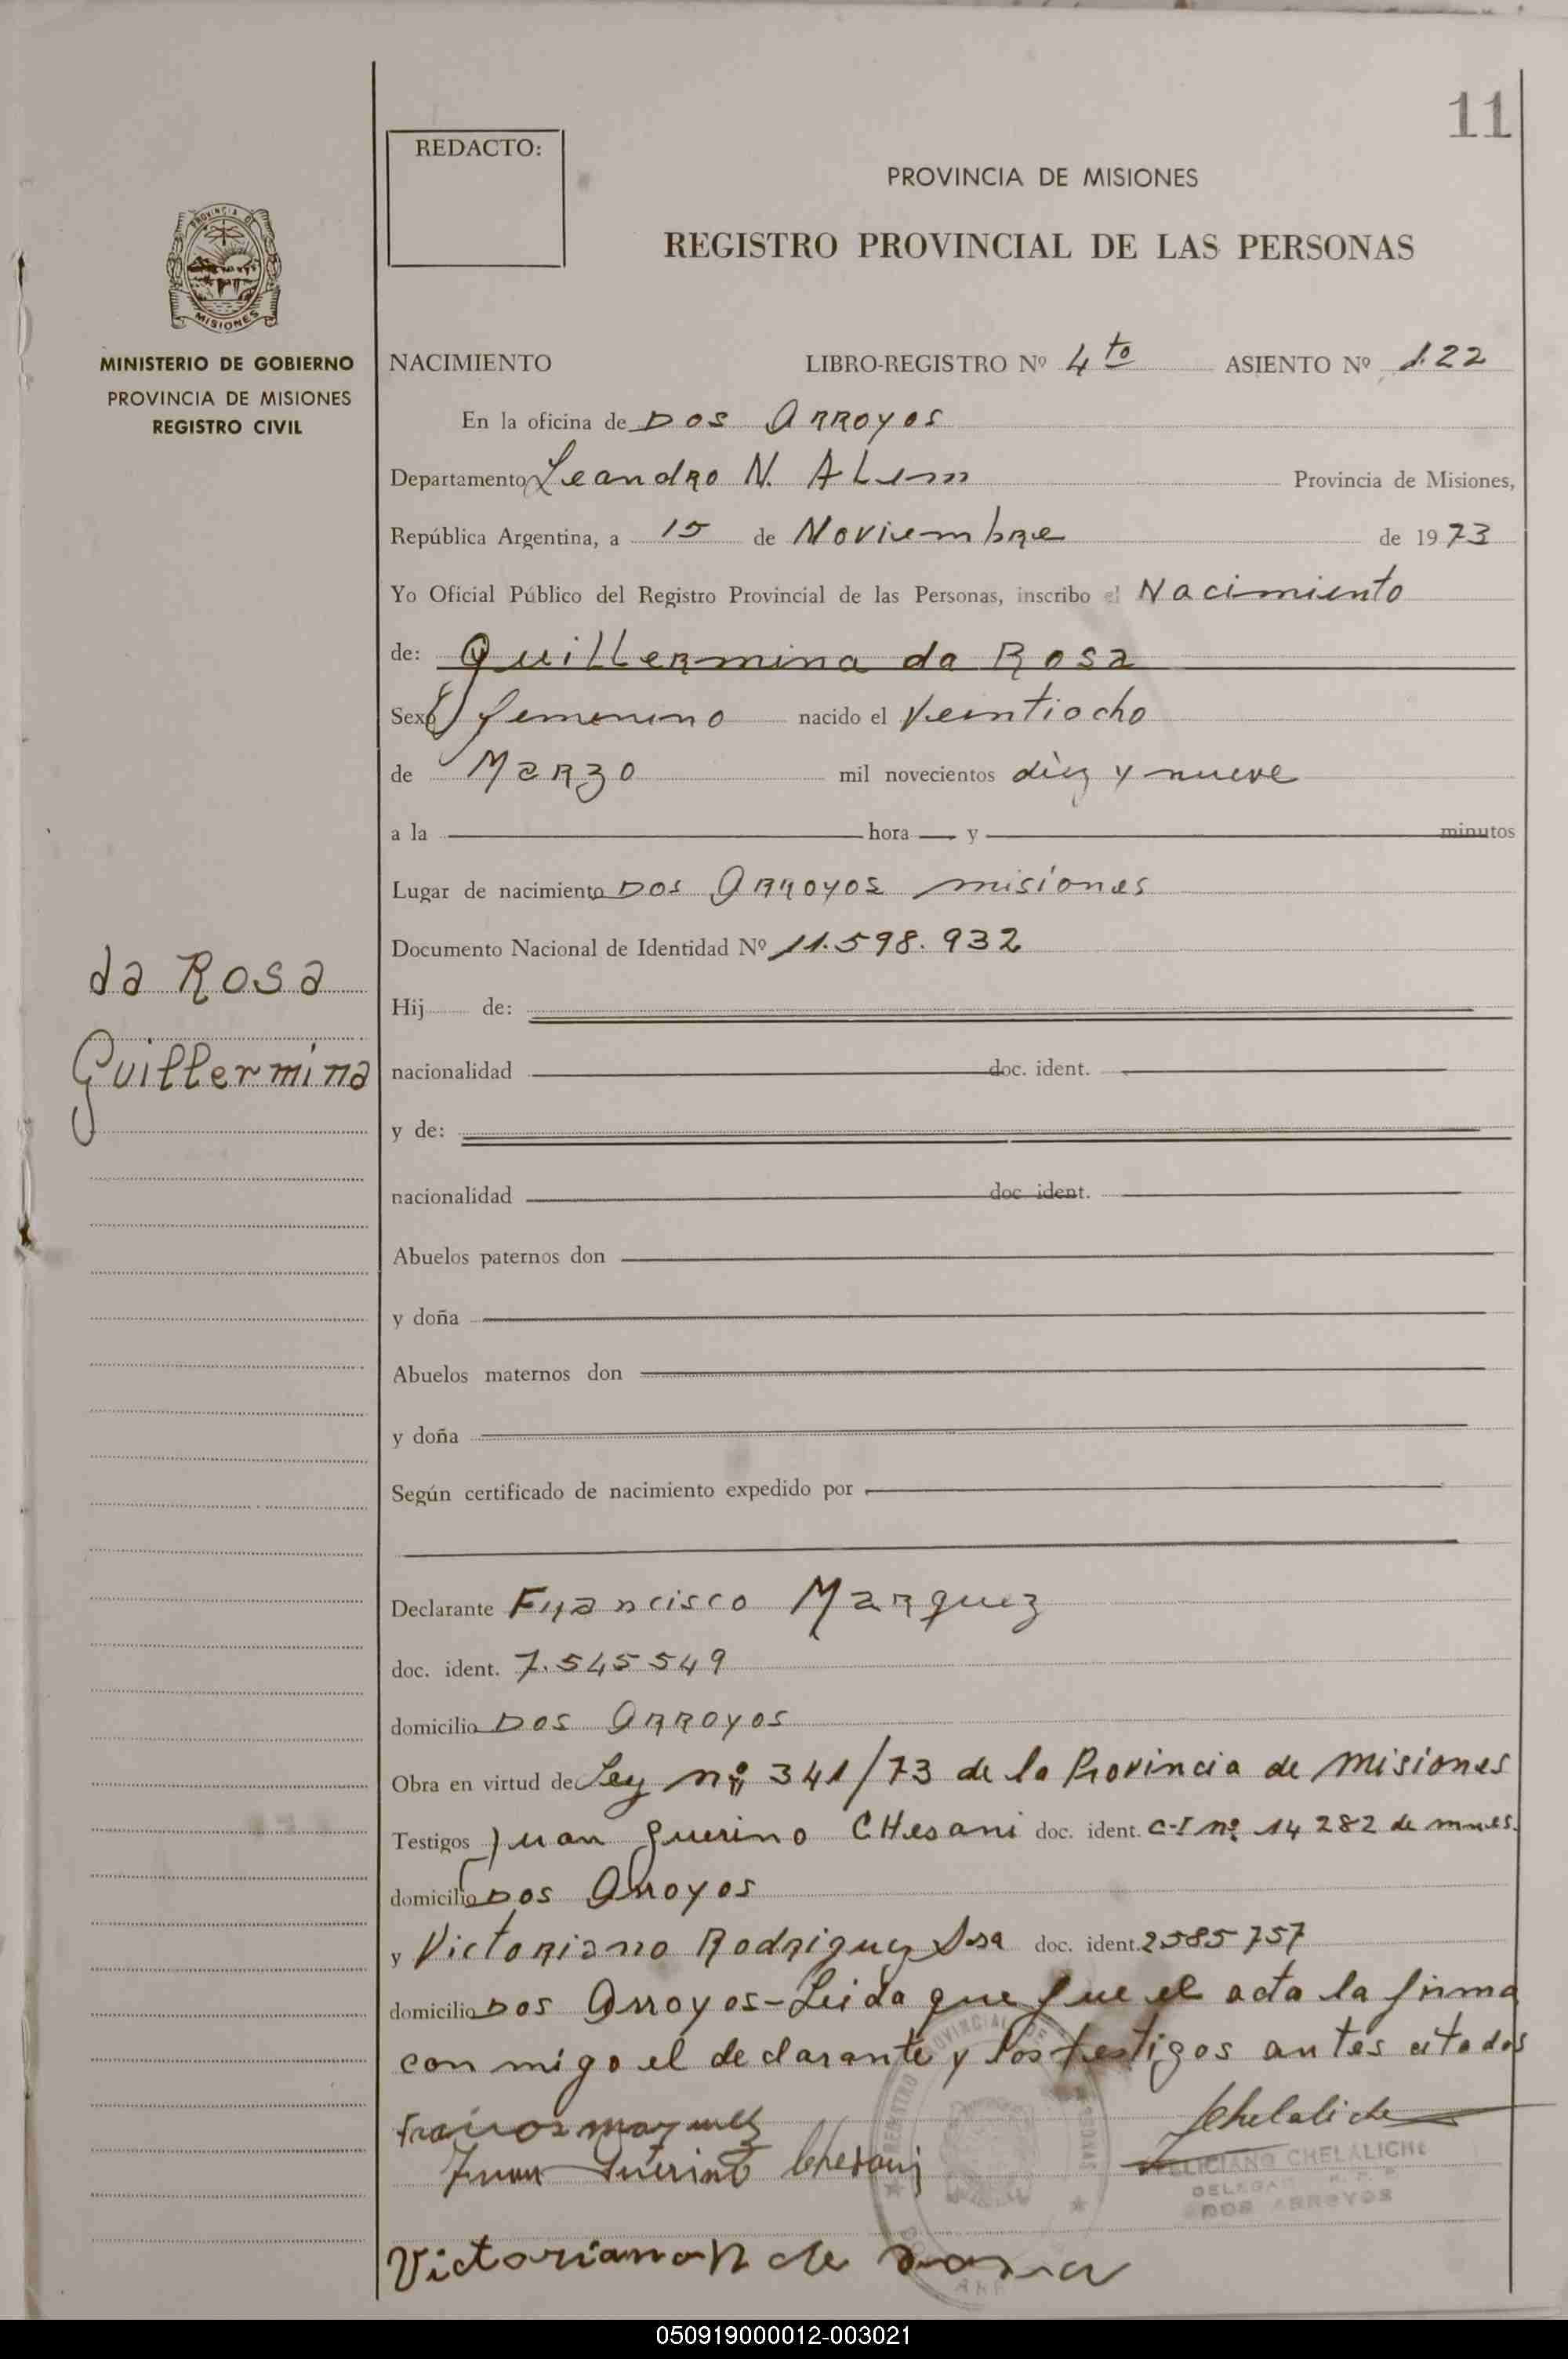 11
REDACTO:
PROVINCIA DE MISIONES
REGISTRO PROVINCIAL DE LAS PERSONAS
PROVINCIA DE
MISIONES
MINISTERIO DE GOBIERNO
PROVINCIA DE MISIONES
REGISTRO CIVIL
NACIMIENTO LIBRO-REGISTRO Nº 4to ASIENTO Nº 122
En la oficina de Dos Arroyos
Departamento Leandro N. Alem Provincia de Misiones,
República Argentina, a 15 de Noviembre de 1973
Yo Oficial Público del Registro Provincial de las Personas, inscribo el Nacimiento
de: Guillermina da Rosa
Sexo femenino nacido el Veintiocho
de Marzo mil novecientos diez y nueve
a la hora y minutos
Lugar de nacimiento Dos Arroyos misiones
Documento Nacional de Identidad Nº 11.598.932
da Rosa
Guillermina
Hij de:
nacionalidad doc. ident.
y de:
nacionalidad doc ident.
Abuelos paternos don
y doña
Abuelos maternos don
y doña
Según certificado de nacimiento expedido por
Declarante Francisco Marquez
doc. ident. 7.545549
domicilio Dos Arroyos
Obra en virtud de Ley nº 341/73 de la Provincia de Misiones
Testigos Juan Guerino CHesani doc. ident. C-I nº 14282 de mnes.
domicilio Dos Arroyos
y Victoriano Rodriguez doc. ident. 2585757
domicilio Dos Arroyos-Leida que fue el acta la firma
con migo el declarante y los testigos antes citados
Chelaliche
Juan Guerino Chesani
FELICIANO CHELALICHE
DOS ARROYOS
Victoriano R de
050919000012-003021